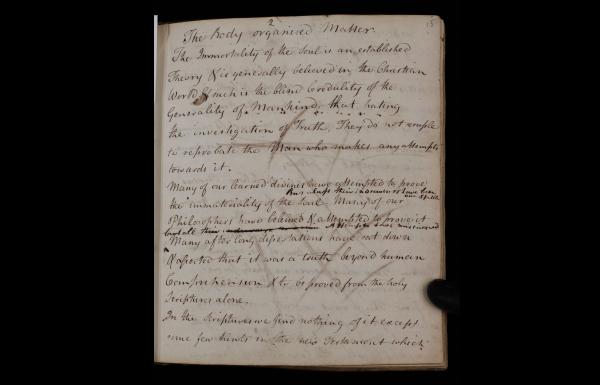 2
15
The Body organized Matter
The Immortality of the Soul is an established
Theory & is generally believed in the Christian
World & such is the blind Credulity of the
Generality of Mankind, that hating
the investigation of Truth, They do not scruple
to reprobate the Man who makes any attempts
towards it.
Many of our learned divines have attempted to prove
But their have been
the immateriality of the Soul. Many of our
Philosophers have believed & attempted to prove it
but all their
Many after long disertations have sat down
& asserted that it was a truth beyond human
Comprehension & to be proved from the holy
Scriptures alone.
In the Scriptures we find nothing of it except
some few hints in the new Testament which